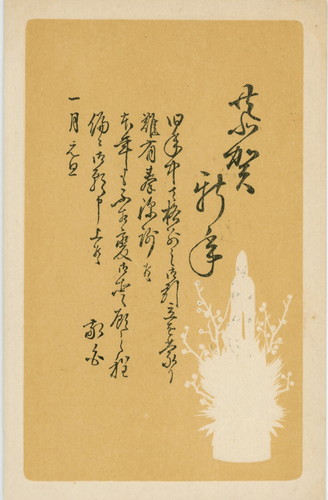 恭賀
新年
旧年中は格別之御引立を蒙り
難有奉深謝候
本年も不相変御愛顧之程
偏ニ御願申上候
敬白
一月元旦